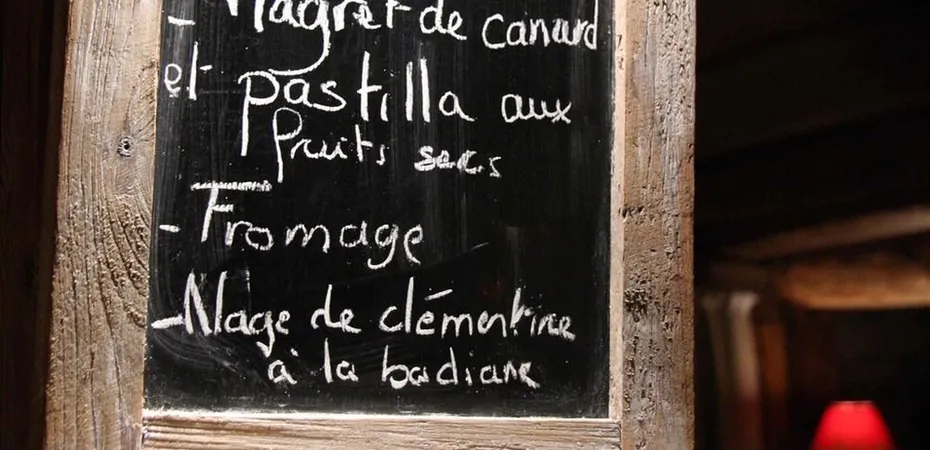 - Magret de canard
et pastilla aux
fruits secs
- Fromage
- Nage de clémentine
à la badiane